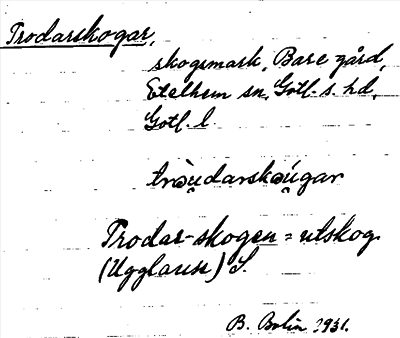 Trodarskogar,
skogsmark, Bare gård,
Etelhem sn, Gotl. s. hd,
Gotl. l.
tròu̯darskǝu̯gar
Trodar-skogen = utskog
(Ugglause) S.
B. Bolin 1931.